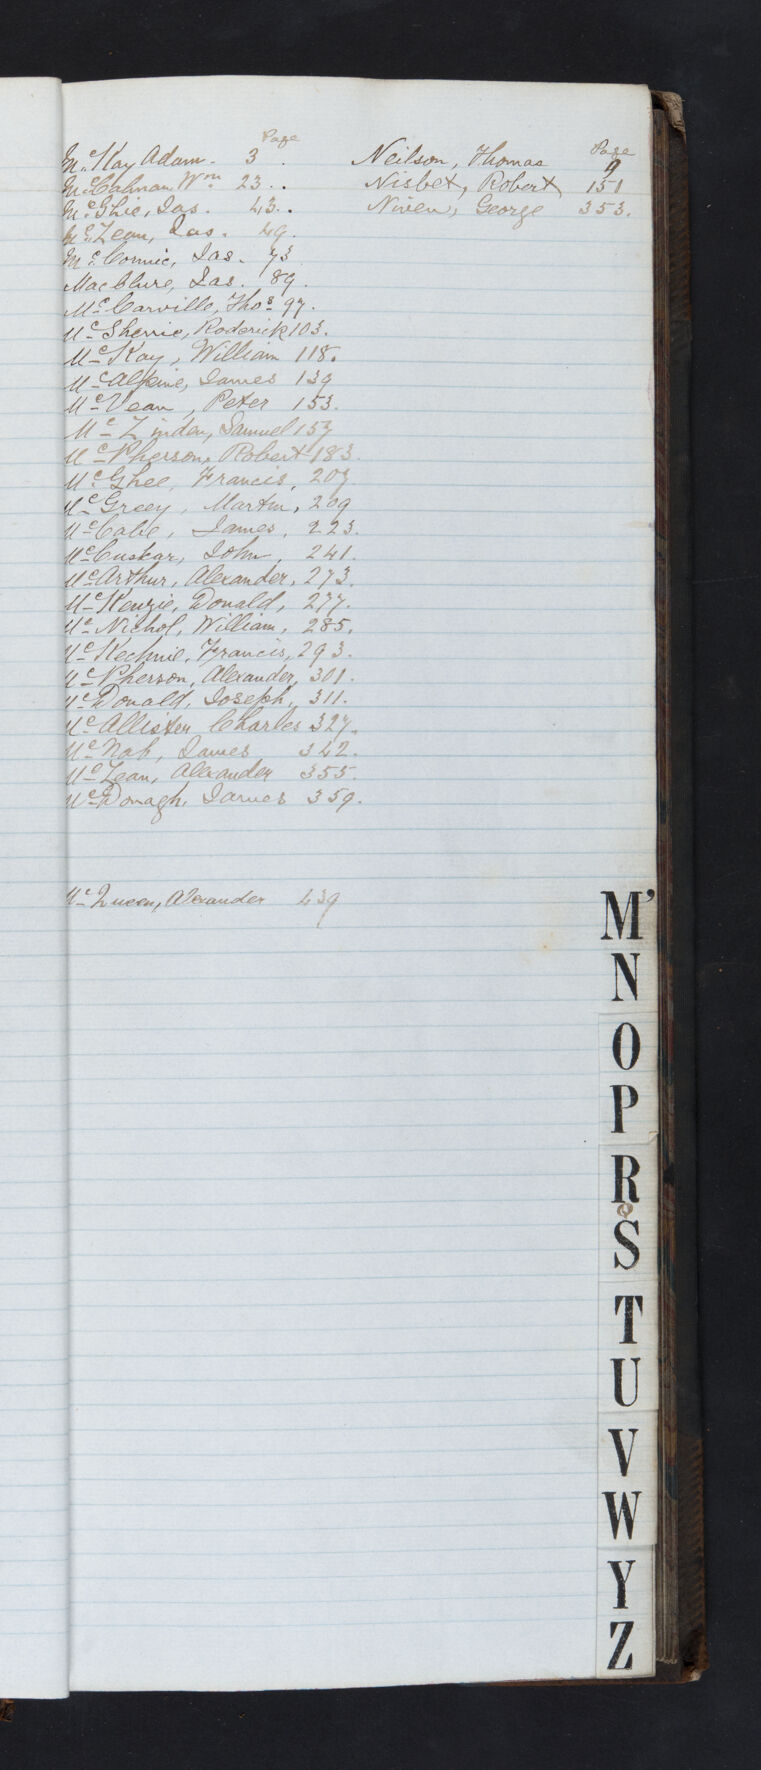 Page
McKay Adam. 3.
McCalman, Wm 23..
McGhie, Jas. 43..
McLean, Jas. 49.
McCornic, Jas. 73
MacClure, Jas. 89.
McCarville, Thos 97.
McSherrie, Roderick 103.
McKay, William 118.
McAlpine, James 139
McVean, Peter 153.
McLinden, Samuel 157
McPherson, Robert 183.
McGhee, Francis, 207
McGreey, Martin, 209
McCabe, James, 223.
McCuskar, John, 241.
McArthur, Alexander, 273.
McKenzie, Donald, 277.
McNichol, William, 285.
McKechnie, Francis, 293.
McPherson, Alexander, 301.
McDonald, Joseph, 311.
McAllister Charles 327.
McNab, James 342.
McLean, Alexander 355.
McDonagh, James 359.
McQueen, Alexander 439
Page
Neilson, Thomas 9
Nisbet, Robert 151
Niven, George 353.
M'
N
O
P
R
S
T
U
V
W
Y
Z